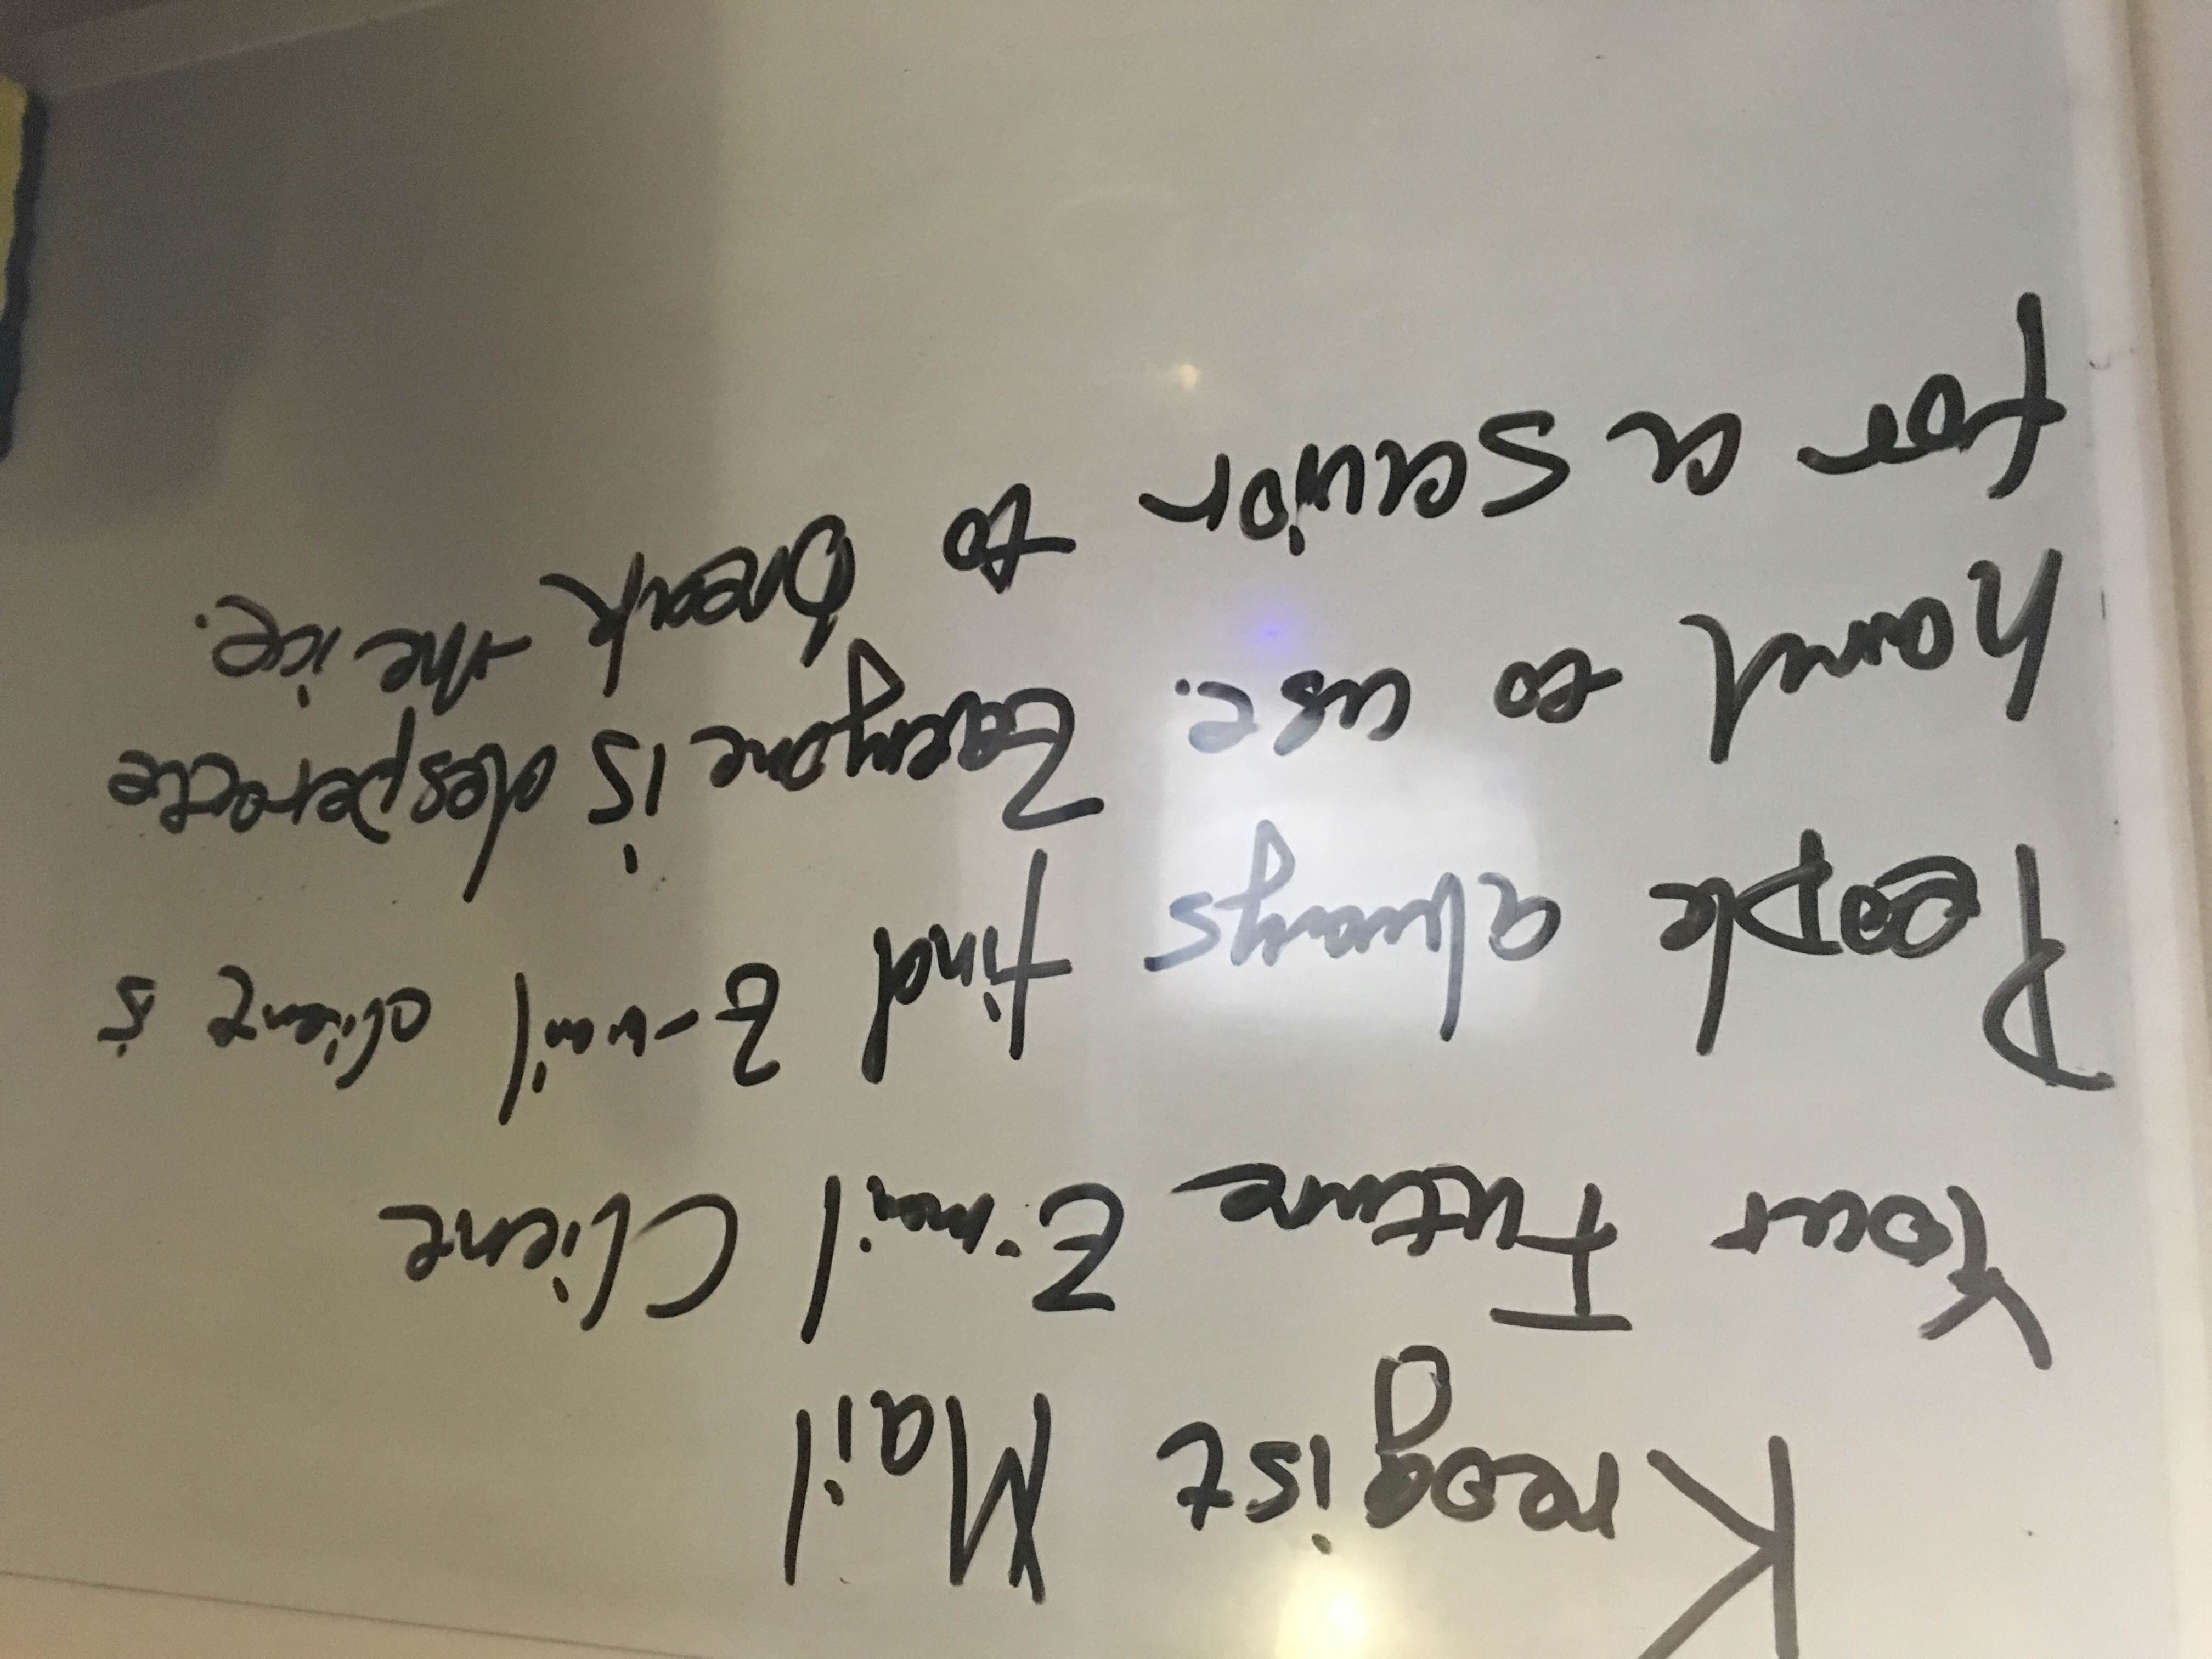 Kreogist Mail
Your Future E-mail Client
People always find E-mail client is
hard to use. Everyone is desperate
for a savior to break the ice.